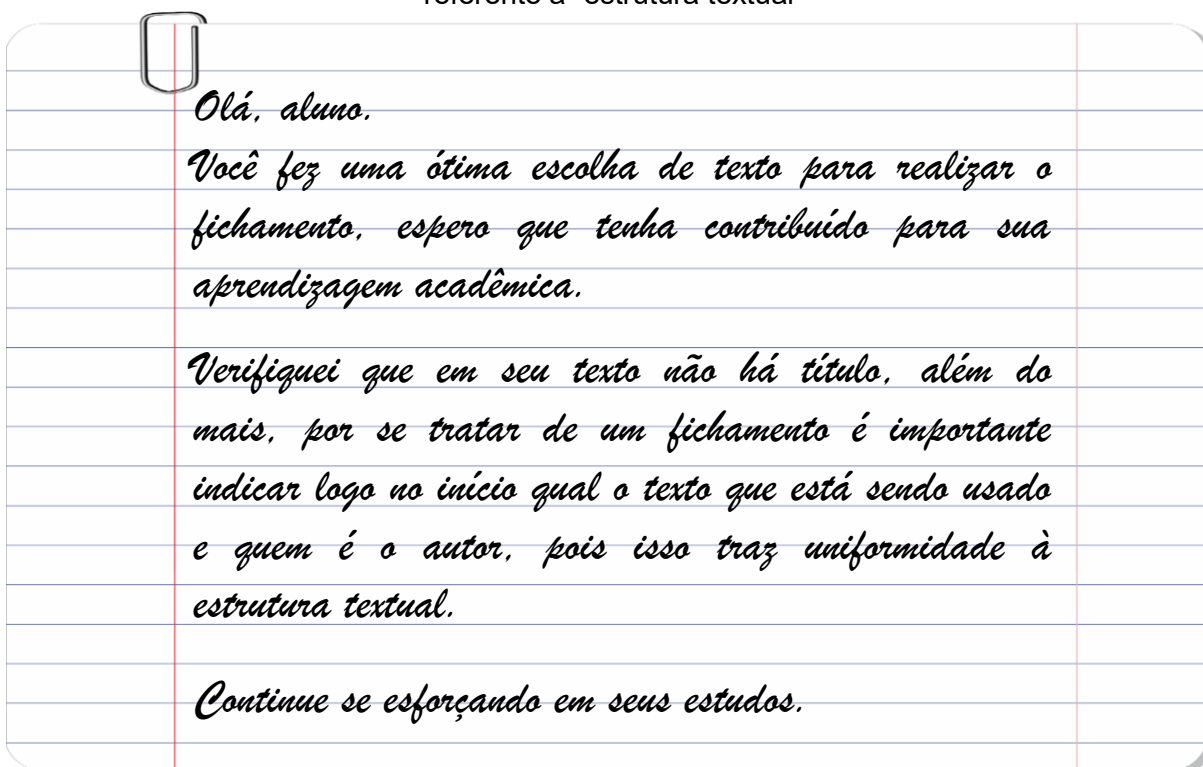 Olá, aluno.
Você fez uma ótima escolha de texto para realizar o
fichamento, espero que tenha contribuído para sua
aprendizagem acadêmica.
Verifiquei que em seu texto não há título, além do
mais, por se tratar de um fichamento é importante
indicar logo no início qual o texto que está sendo usado
e quem é o autor, pois isso traz uniformidade à
estrutura textual.
Continue se esforçando em seus estudos.